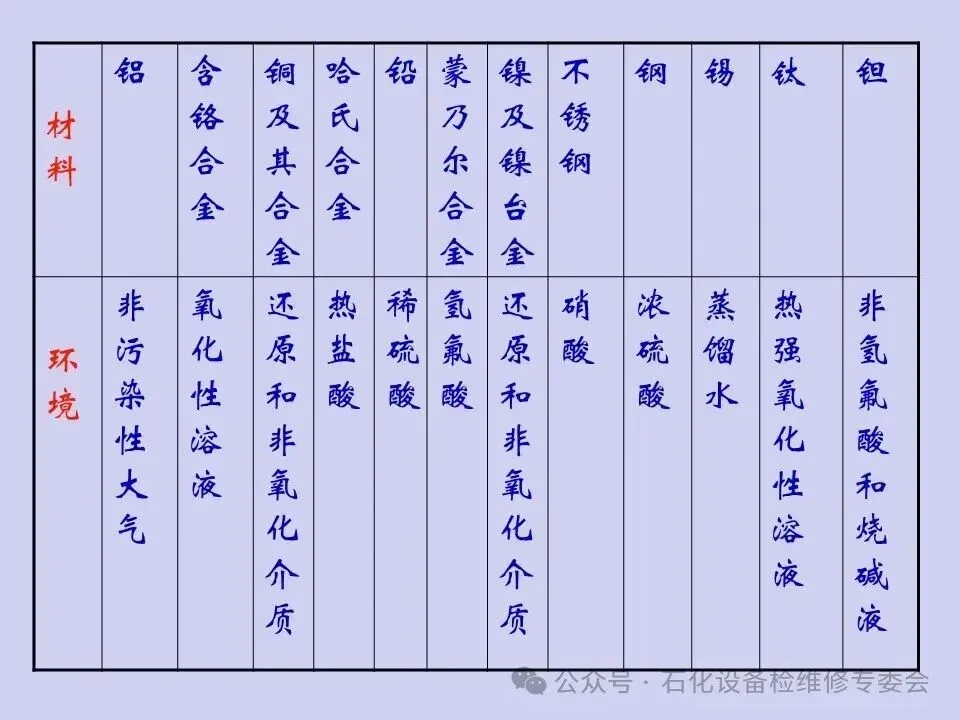 材料
铝
含铬合金
铜及其合金
哈氏合金
铅
蒙乃尔合金
镍及镍台金
不锈钢
钢
锡
钛
钽
环境
非污染性大气
氧化性溶液
还原和非氧化介质
热盐酸
稀硫酸
氢氟酸
还原和非氧化介质
硝酸
浓硫酸
蒸馏水
热强氧化性溶液
非氢氟酸和烧碱液
公众号·石化设备检维修专委会